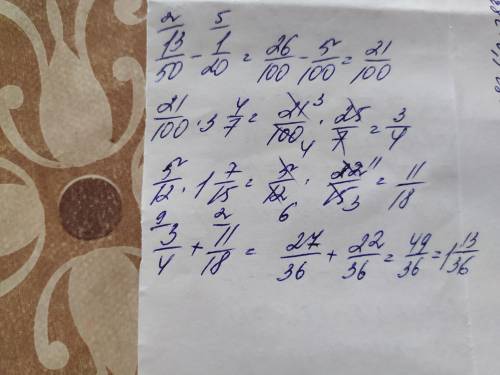 2 5
13/50 - 1/20 = 26/100 - 5/100 = 21/100
21/100 · 3 4/7 = 21/100 · 25/7 = 3/4
3
4
5/12 · 1 7/15 = 5/12 · 22/15 = 11/18
11
6 3
9 2
3/4 + 11/18 = 27/36 + 22/36 = 49/36 = 1 13/36